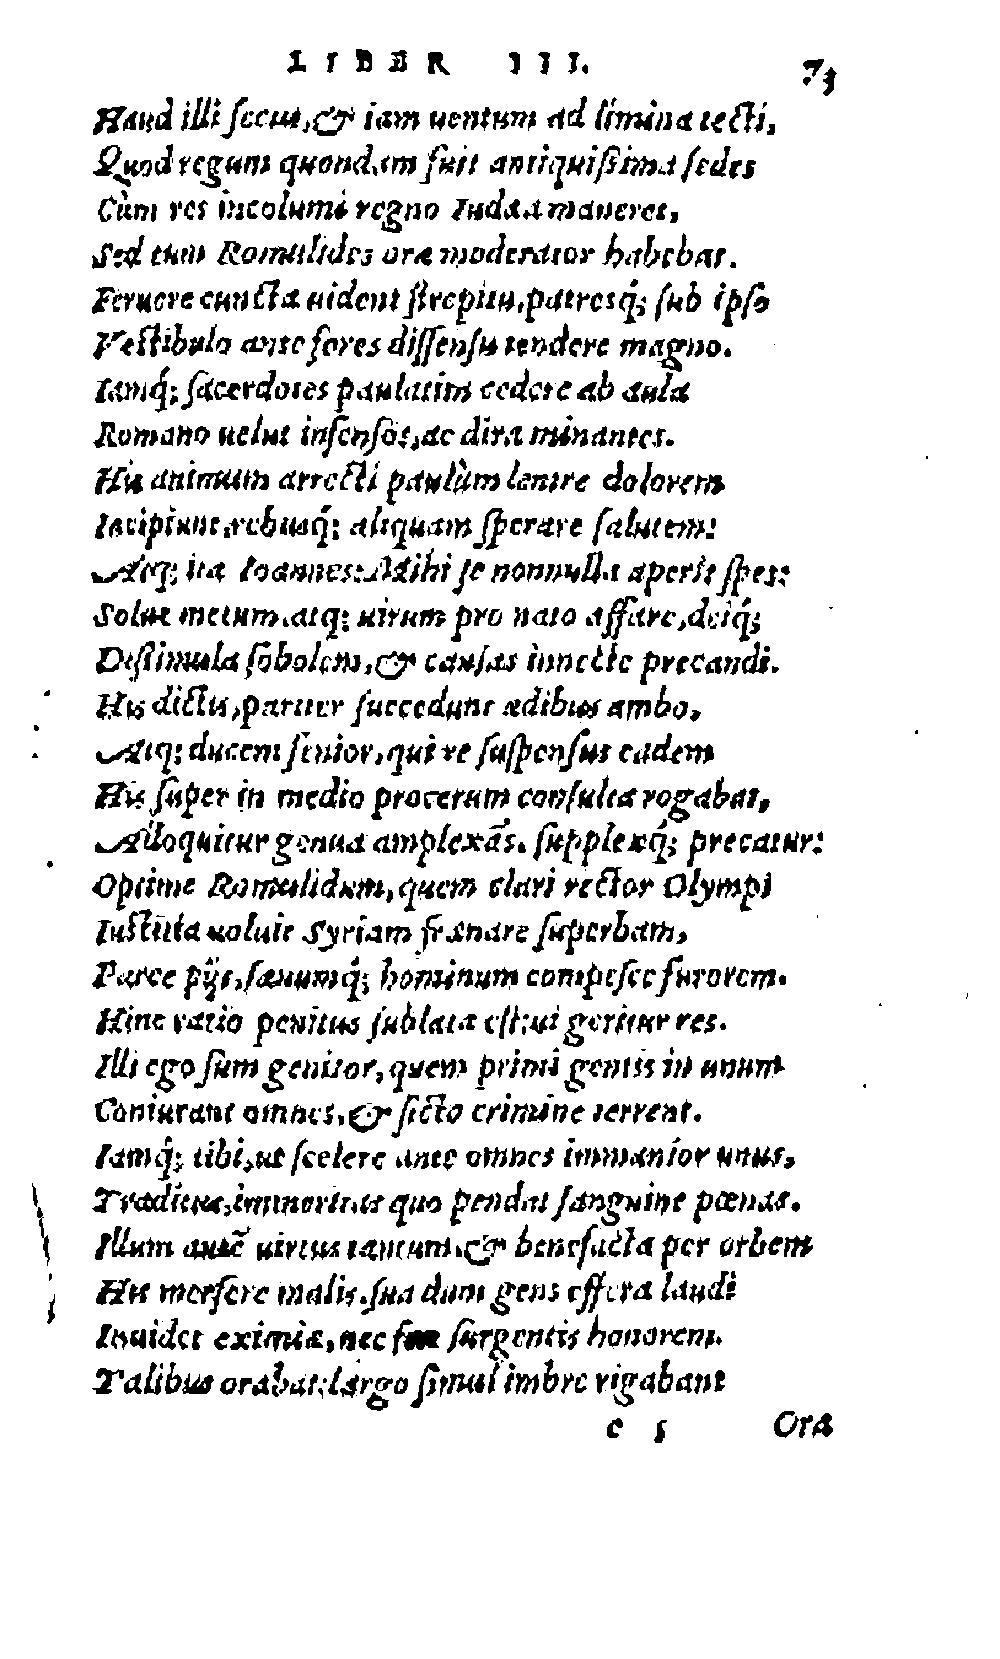 LIBER III. 73
Haud illi ſecus, & iam uentum ad límina tecti,
Quod regum quondam fuit antiquiſsima ſedes
Cùm res incolumi regno Iudæa maneret,
Sed tum Romulides oræ moderator habebat.
Feruere cuncta uident ſtrepitu, patresq́; ſub ipſo
Veſtibulo ante fores diſſenſu tendere magno.
Iamq́; ſacerdotes paulatim cedere ab aula
Romano uelut infenſos, ac dira minantes.
His animum arrecti paulùm lenire dolorem
Incipiunt, rebusq́; aliquam ſperare ſalutem:
Atq; ita Ioannes: Mihi ſe nonnulla aperit ſpes:
Solue metum, atq; uirum pro nato affare, deiq́;
Diſsimula ſobolem, & cauſas innecte precandi.
His dictis, pariter ſuccedunt ædibus ambo,
Atq; ducem ſenior, qui re ſuſpenſus eadem
His ſuper in medio procerum conſulta rogabat,
Alloquitur genua amplexās. ſupplexq́; precatur:
Optime Romulidum, quem clari rector Olympi
Iuſtitia uoluit Syriam frænare ſuperbam,
Parce pijs, ſæuumq́; hominum compeſce furorem.
Hinc ratio penitus ſublata eſt: ui geritur res.
Illi ego ſum genitor, quem primi gentis in unum
Coniurant omnes, & ficto crimine terrent.
Iamq́; tibi, ut ſcelere ante omnes immanior unus,
Traditus, immeritas quo pendat ſanguine pœnas.
Illum autē uirtus tantum, & benefacta per orbem
His merſere malis, ſua dum gens effera laudi
Inuidet eximiæ, nec fert ſurgentis honorem.
Talibus orabat: largo ſimul imbre rigabant
e 5 Ora